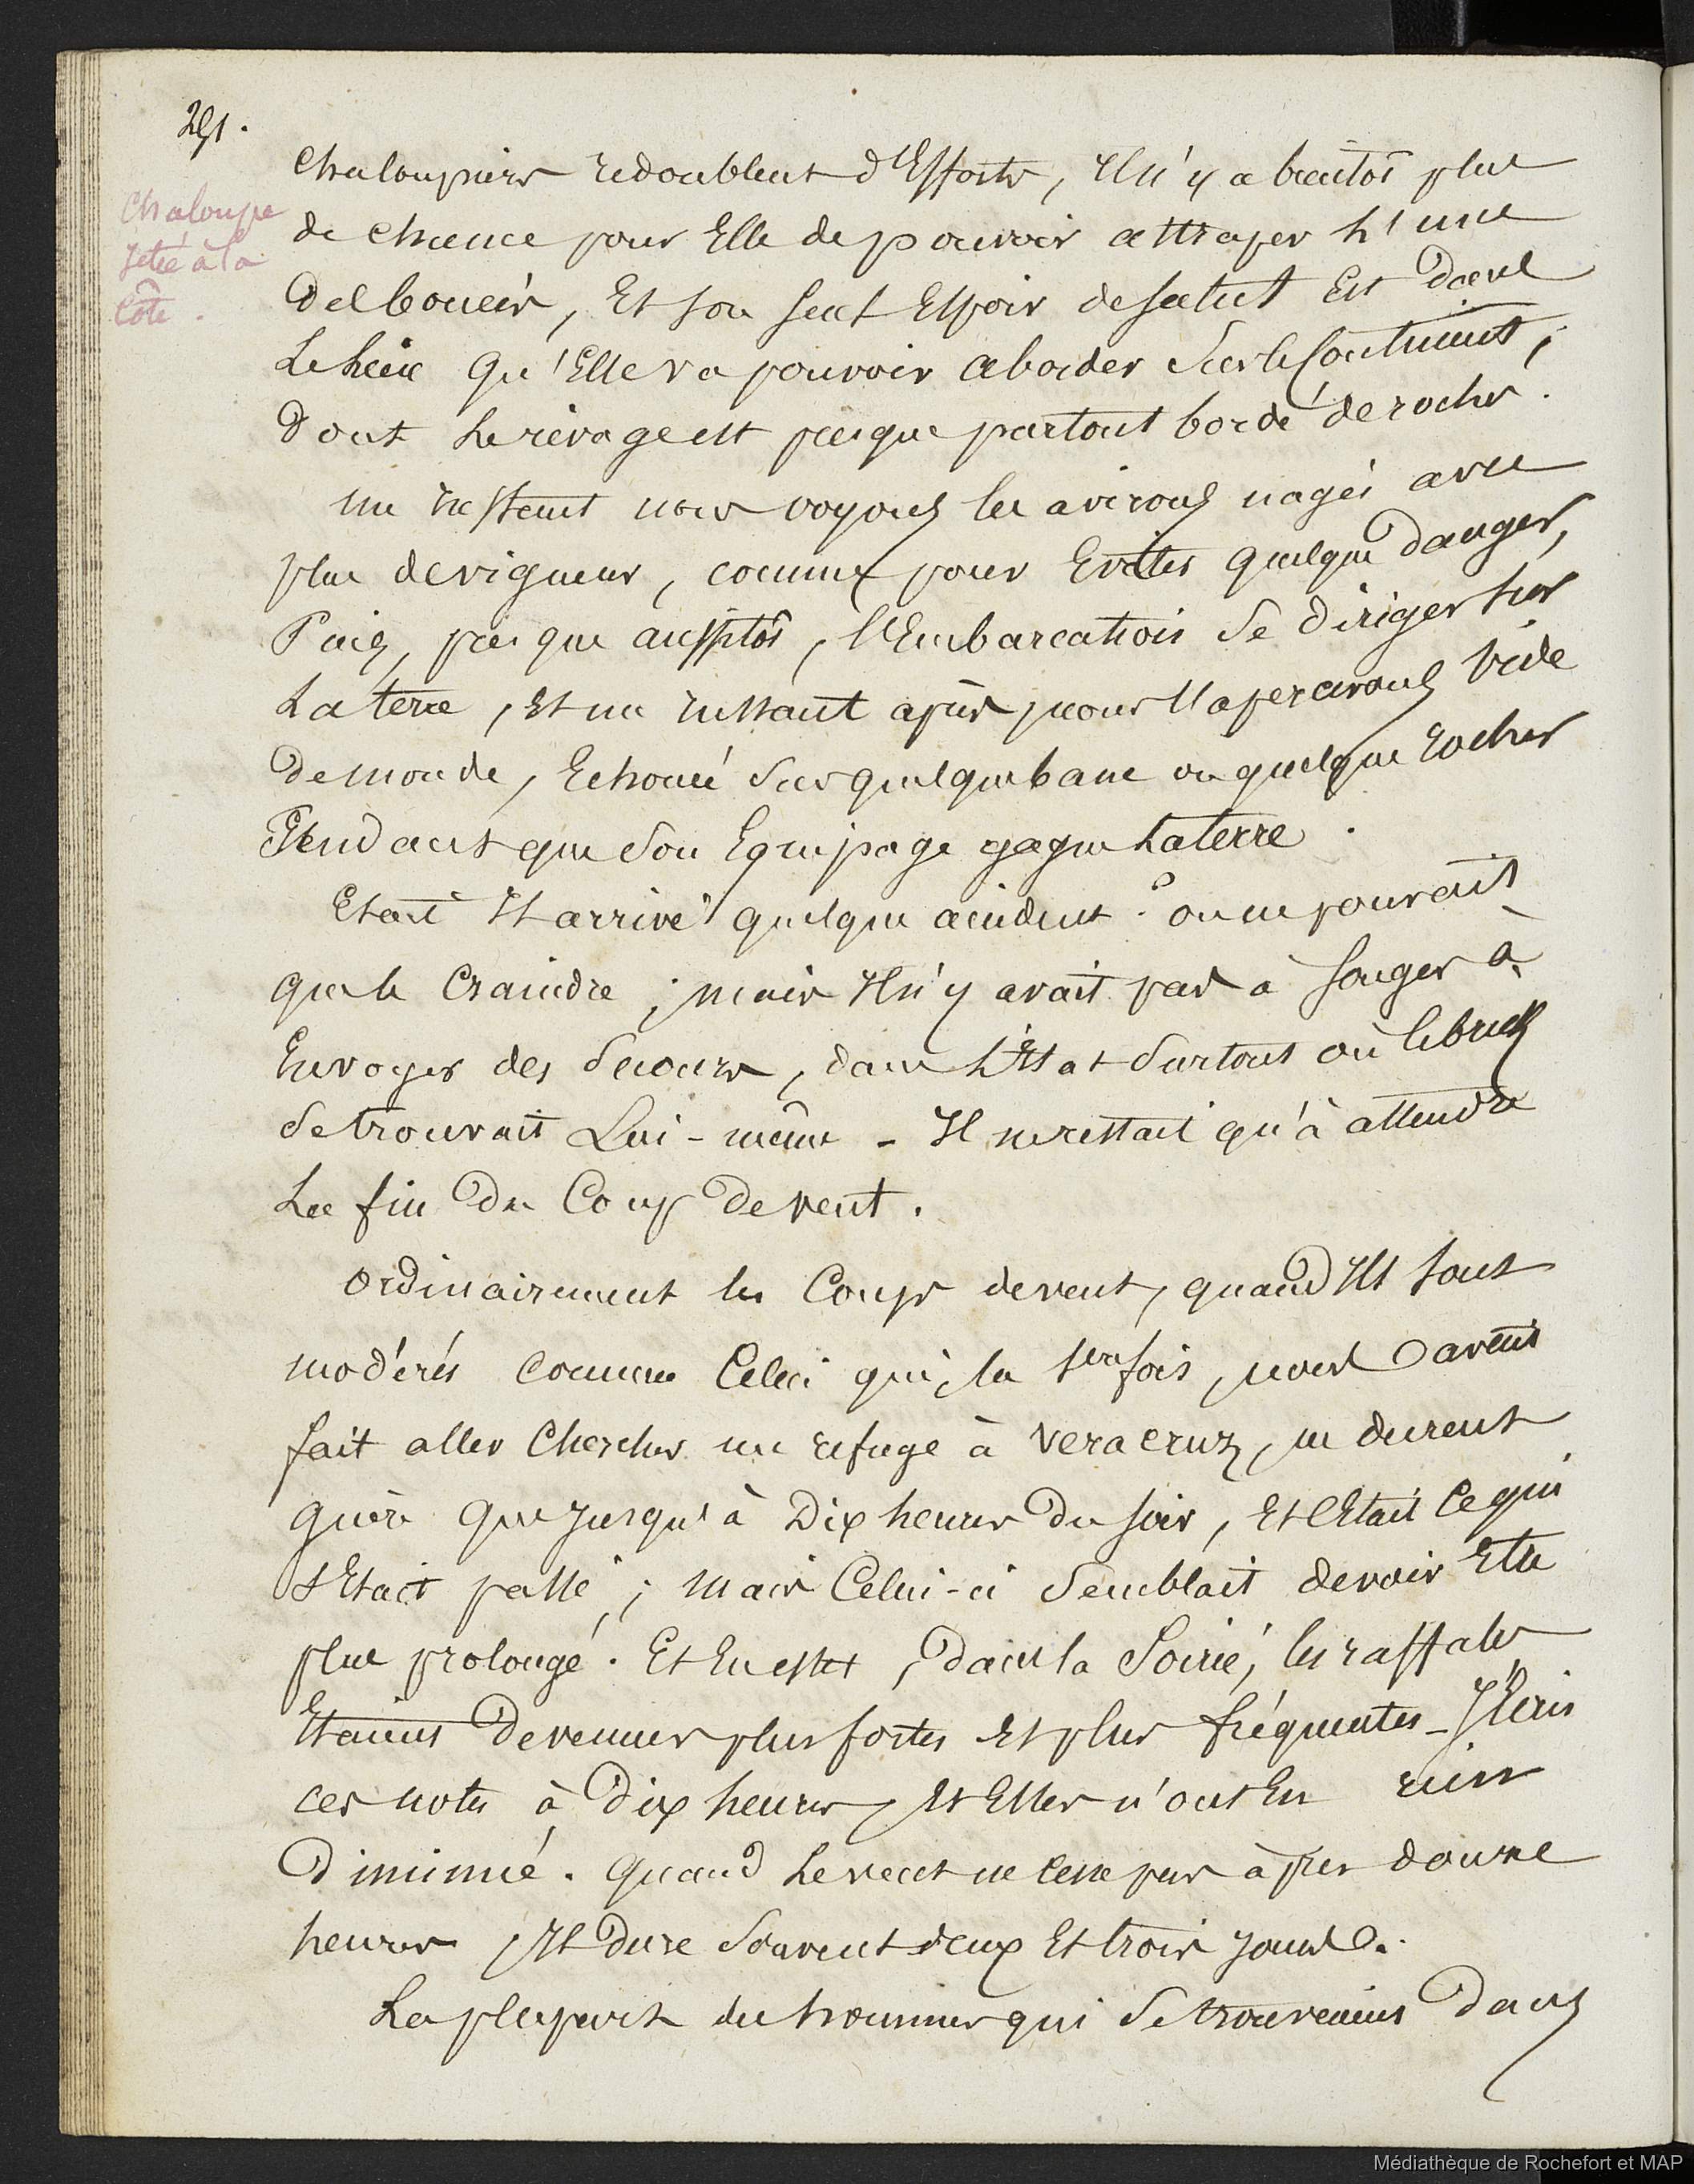 291.
Chaloupe
jetée à la
Côte.
chaloupiers redoublent d'Efforts, Il n'y a bientôt plus
de chance pour Elle de pouvoir attraper L'une
des bouées, Et son seul Espoir de salut Est dans
Le lieu qu'Elle va pouvoir aborder sur le Continent,
dont Le rivage est presque partout bordé de roches.
un instant nous voyons les avirons nagés avec
plus de vigueur, comme pour Eviter quelque danger,
Puis, presque aussitôt, l'Embarcation se diriger sur
La terre, Et un instant après, nous l'apercevons vide
de monde, Echoué sur quelque banc ou quelque rocher
Pendant que son Equipage gagne La terre.
Etait Il arrivé quelque accident? on ne pouvait
que le Craindre; mais Il n'y avait pas à songer à
Envoyer des secours, dans L'Etat surtout où le brick
se trouvait Lui-même - Il ne restait qu'à attendre
La fin du Coup de vent.
Ordinairement les Coups de vent, quand Ils sont
modérés comme Celui qui, la 1ere fois, nous avait
fait aller Chercher un refuge à Vera cruz, ne durent
guère que jusqu'à Dix heures du soir, Et C'Etait Ce qui
s'Etait passé; mais Celui-ci semblait devoir Etre
plus prolongé. Et En effet, dans la Soirée, les raffales
Etaient devenues plus fortes Et plus fréquentes - J'Ecris
ces notes à dix heures, Et Elles n'ont En rien
diminué. Quand Le vent ne cesse pas après douze
heures, Il dure souvent deux Et trois jours.
La plupart des hommes qui se trouvaient dans
Médiathèque de Rochefort et MAP